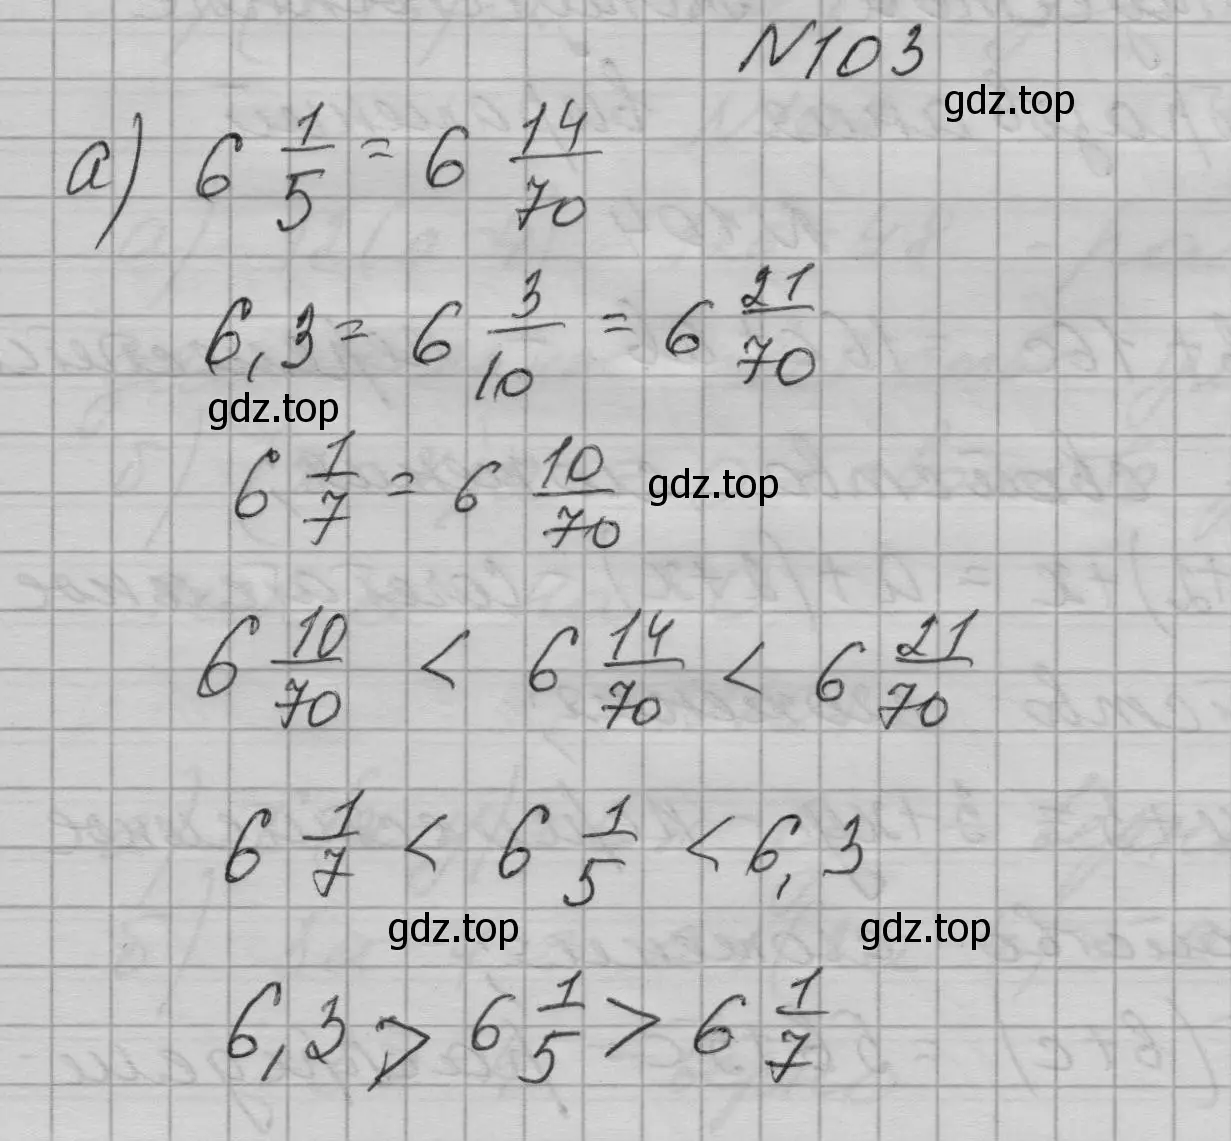 N103
gdz.top
а) 6 1/5 = 6 14/70
6,3 = 6 3/10 = 6 21/70
gdz.top
6 1/7 = 6 10/70
gdz.top
6 10/70 < 6 14/70 < 6 21/70
6 1/7 < 6 1/5 < 6,3
gdz.top gdz.top
6,3 > 6 1/5 > 6 1/7